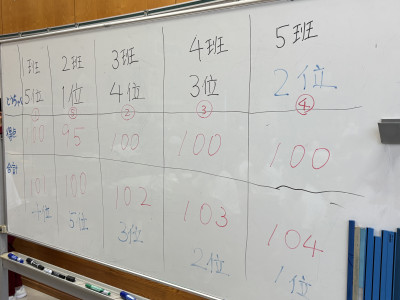 1班 2班 3班 4班 5班
5位 1位 4位 3位 2位
① ⑤ ② ③ ④
100 95 100 100 100
合計 101 100 102 103 104
4位 5位 3位 2位 1位